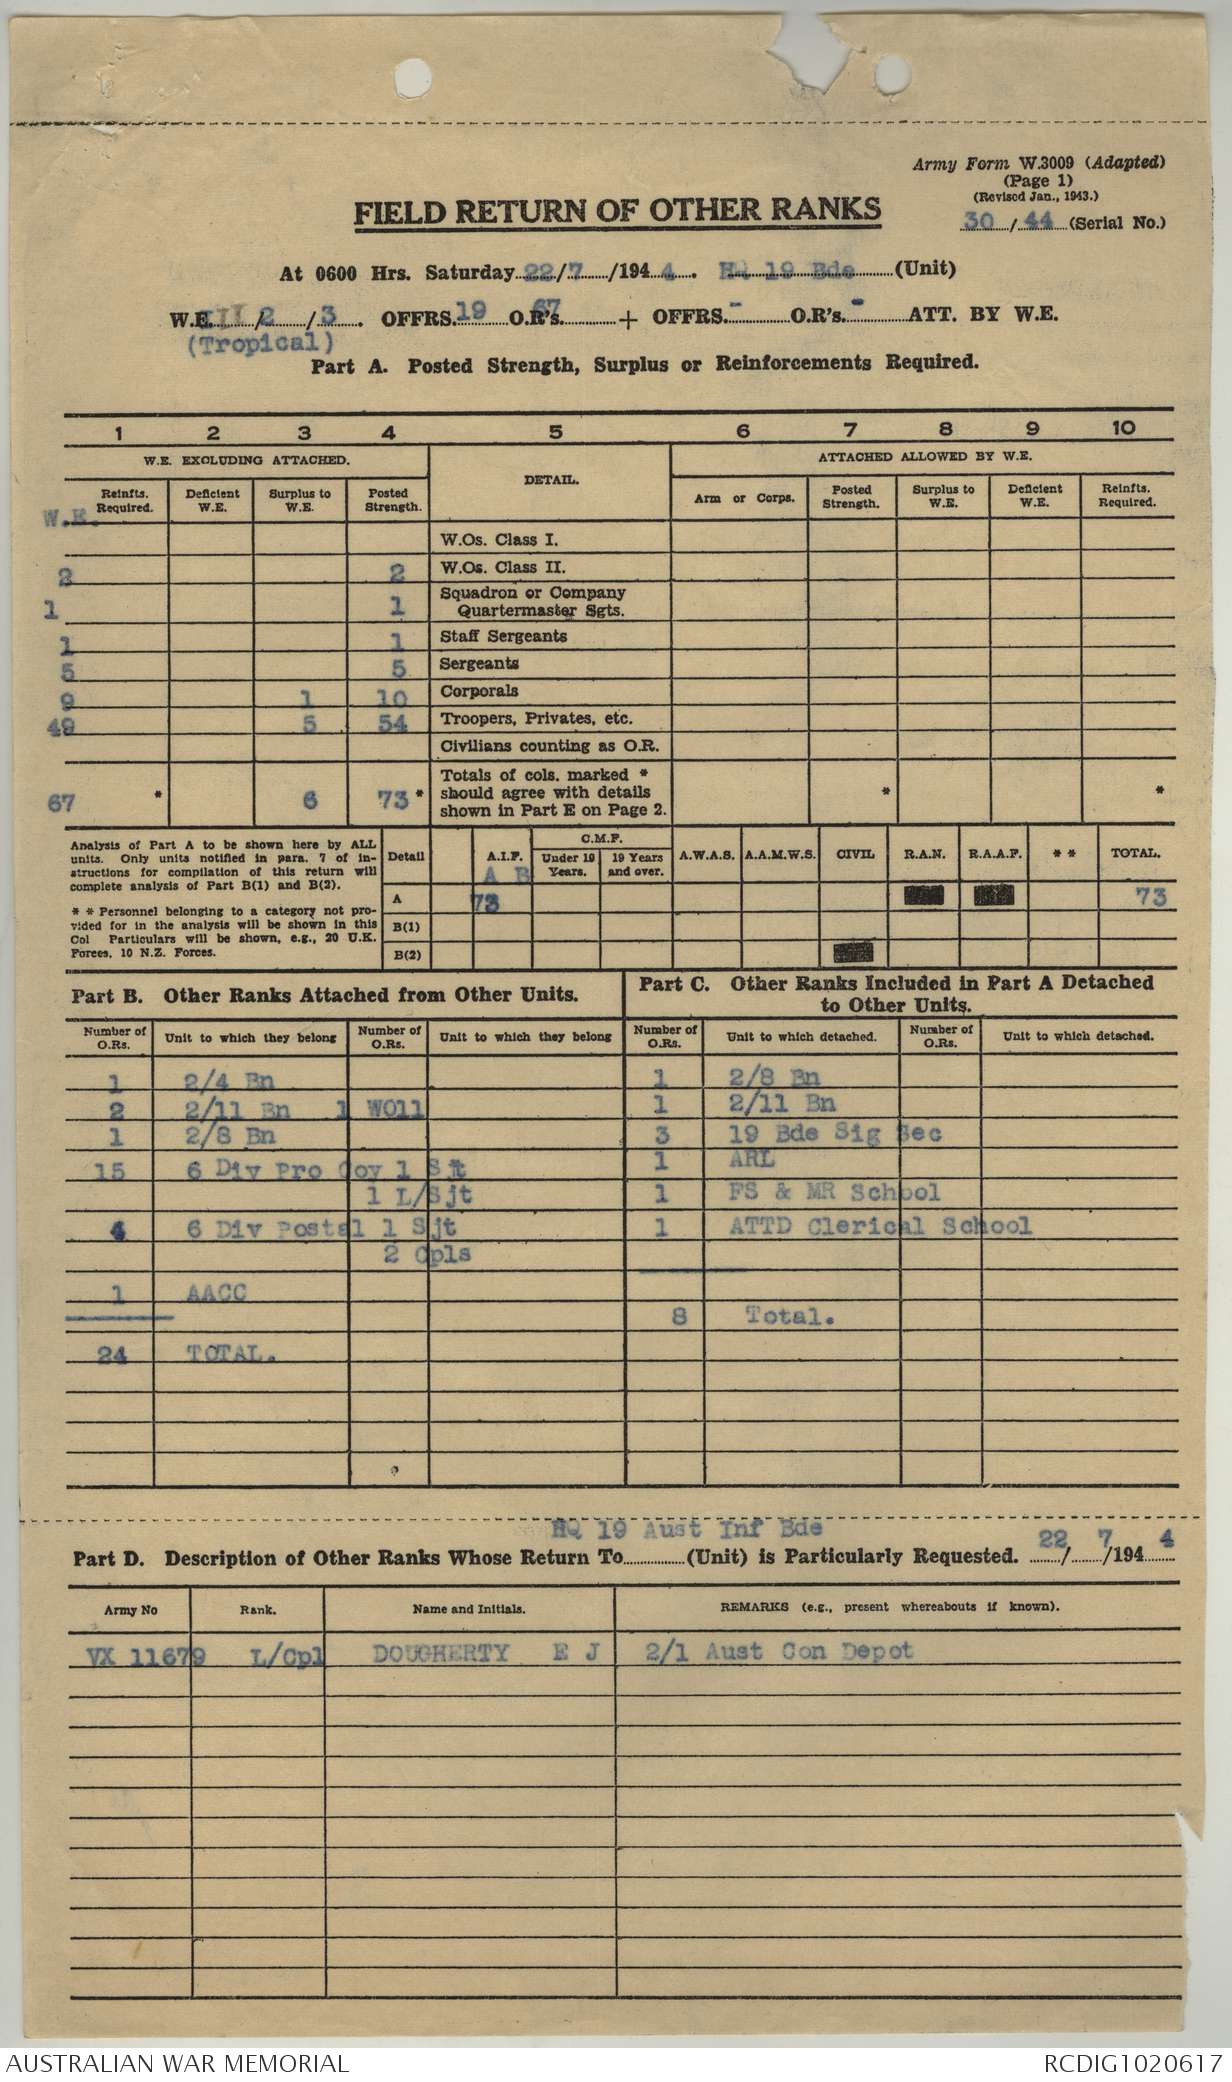 Army Form W.3009 (Adapted)
(Page 1)
(Revised Jan., 1943.)
FIELD RETURN OF OTHER RANKS
30/44 (Serial No.)
At 0600 Hrs. Saturday 22/7/1944. HQ 19 Bde (Unit)
W.E. III/2/3. OFFRS. 19 O.R's. 67 + OFFRS. - O.R's. - ATT. BY W.E.
(Tropical)
Part A. Posted Strength, Surplus or Reinforcements Required.
1 2 3 4 5 6 7 8 9 10
W.E. EXCLUDING ATTACHED. DETAIL. ATTACHED ALLOWED BY W.E.
Reinfts. Required. Deficient W.E. Surplus to W.E. Posted Strength. Arm or Corps. Posted Strength. Surplus to W.E. Deficient W.E. Reinfts. Required.
W.E.
W.Os. Class I.
2 2 W.Os. Class II.
1 1 Squadron or Company Quartermaster Sgts.
1 1 Staff Sergeants
5 5 Sergeants
9 1 10 Corporals
49 5 54 Troopers, Privates, etc.
Civilians counting as O.R.
67 * 6 73 * Totals of cols. marked * should agree with details shown in Part E on Page 2. * *
Analysis of Part A to be shown here by ALL
units. Only units notified in para. 7 of in-
structions for compilation of this return will
complete analysis of Part B(1) and B(2).
* * Personnel belonging to a category not pro-
vided for in the analysis will be shown in this
Col Particulars will be shown, e.g., 20 U.K.
Forces, 10 N.Z. Forces.
Detail A.I.F. C.M.F. Under 19 Years. 19 Years and over. A.W.A.S. A.A.M.W.S. CIVIL R.A.N. R.A.A.F. * * TOTAL.
A B
A 73 73
B(1)
B(2)
Part B. Other Ranks Attached from Other Units.
Number of O.Rs. Unit to which they belong Number of O.Rs. Unit to which they belong
1 2/4 Bn
2 2/11 Bn 1 WO11
1 2/8 Bn
15 6 Div Pro Coy 1 Sjt
1 L/Sjt
4 6 Div Postal 1 Sjt
2 Cpls
1 AACC
24 TOTAL.
Part C. Other Ranks Included in Part A Detached
to Other Units.
Number of O.Rs. Unit to which detached. Number of O.Rs. Unit to which detached.
1 2/8 Bn
1 2/11 Bn
3 19 Bde Sig Sec
1 ARL
1 FS & MR School
1 ATTD Clerical School
8 Total.
HQ 19 Aust Inf Bde
Part D. Description of Other Ranks Whose Return To (Unit) is Particularly Requested. 22/7/1944
Army No Rank. Name and Initials. REMARKS (e.g., present whereabouts if known).
VX 11679 L/Cpl DOUGHERTY E J 2/1 Aust Con Depot
AUSTRALIAN WAR MEMORIAL RCDIG1020617